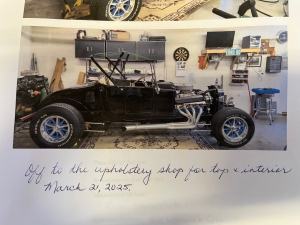 Off to the upholstery shop for top & interior
March 21, 2025.